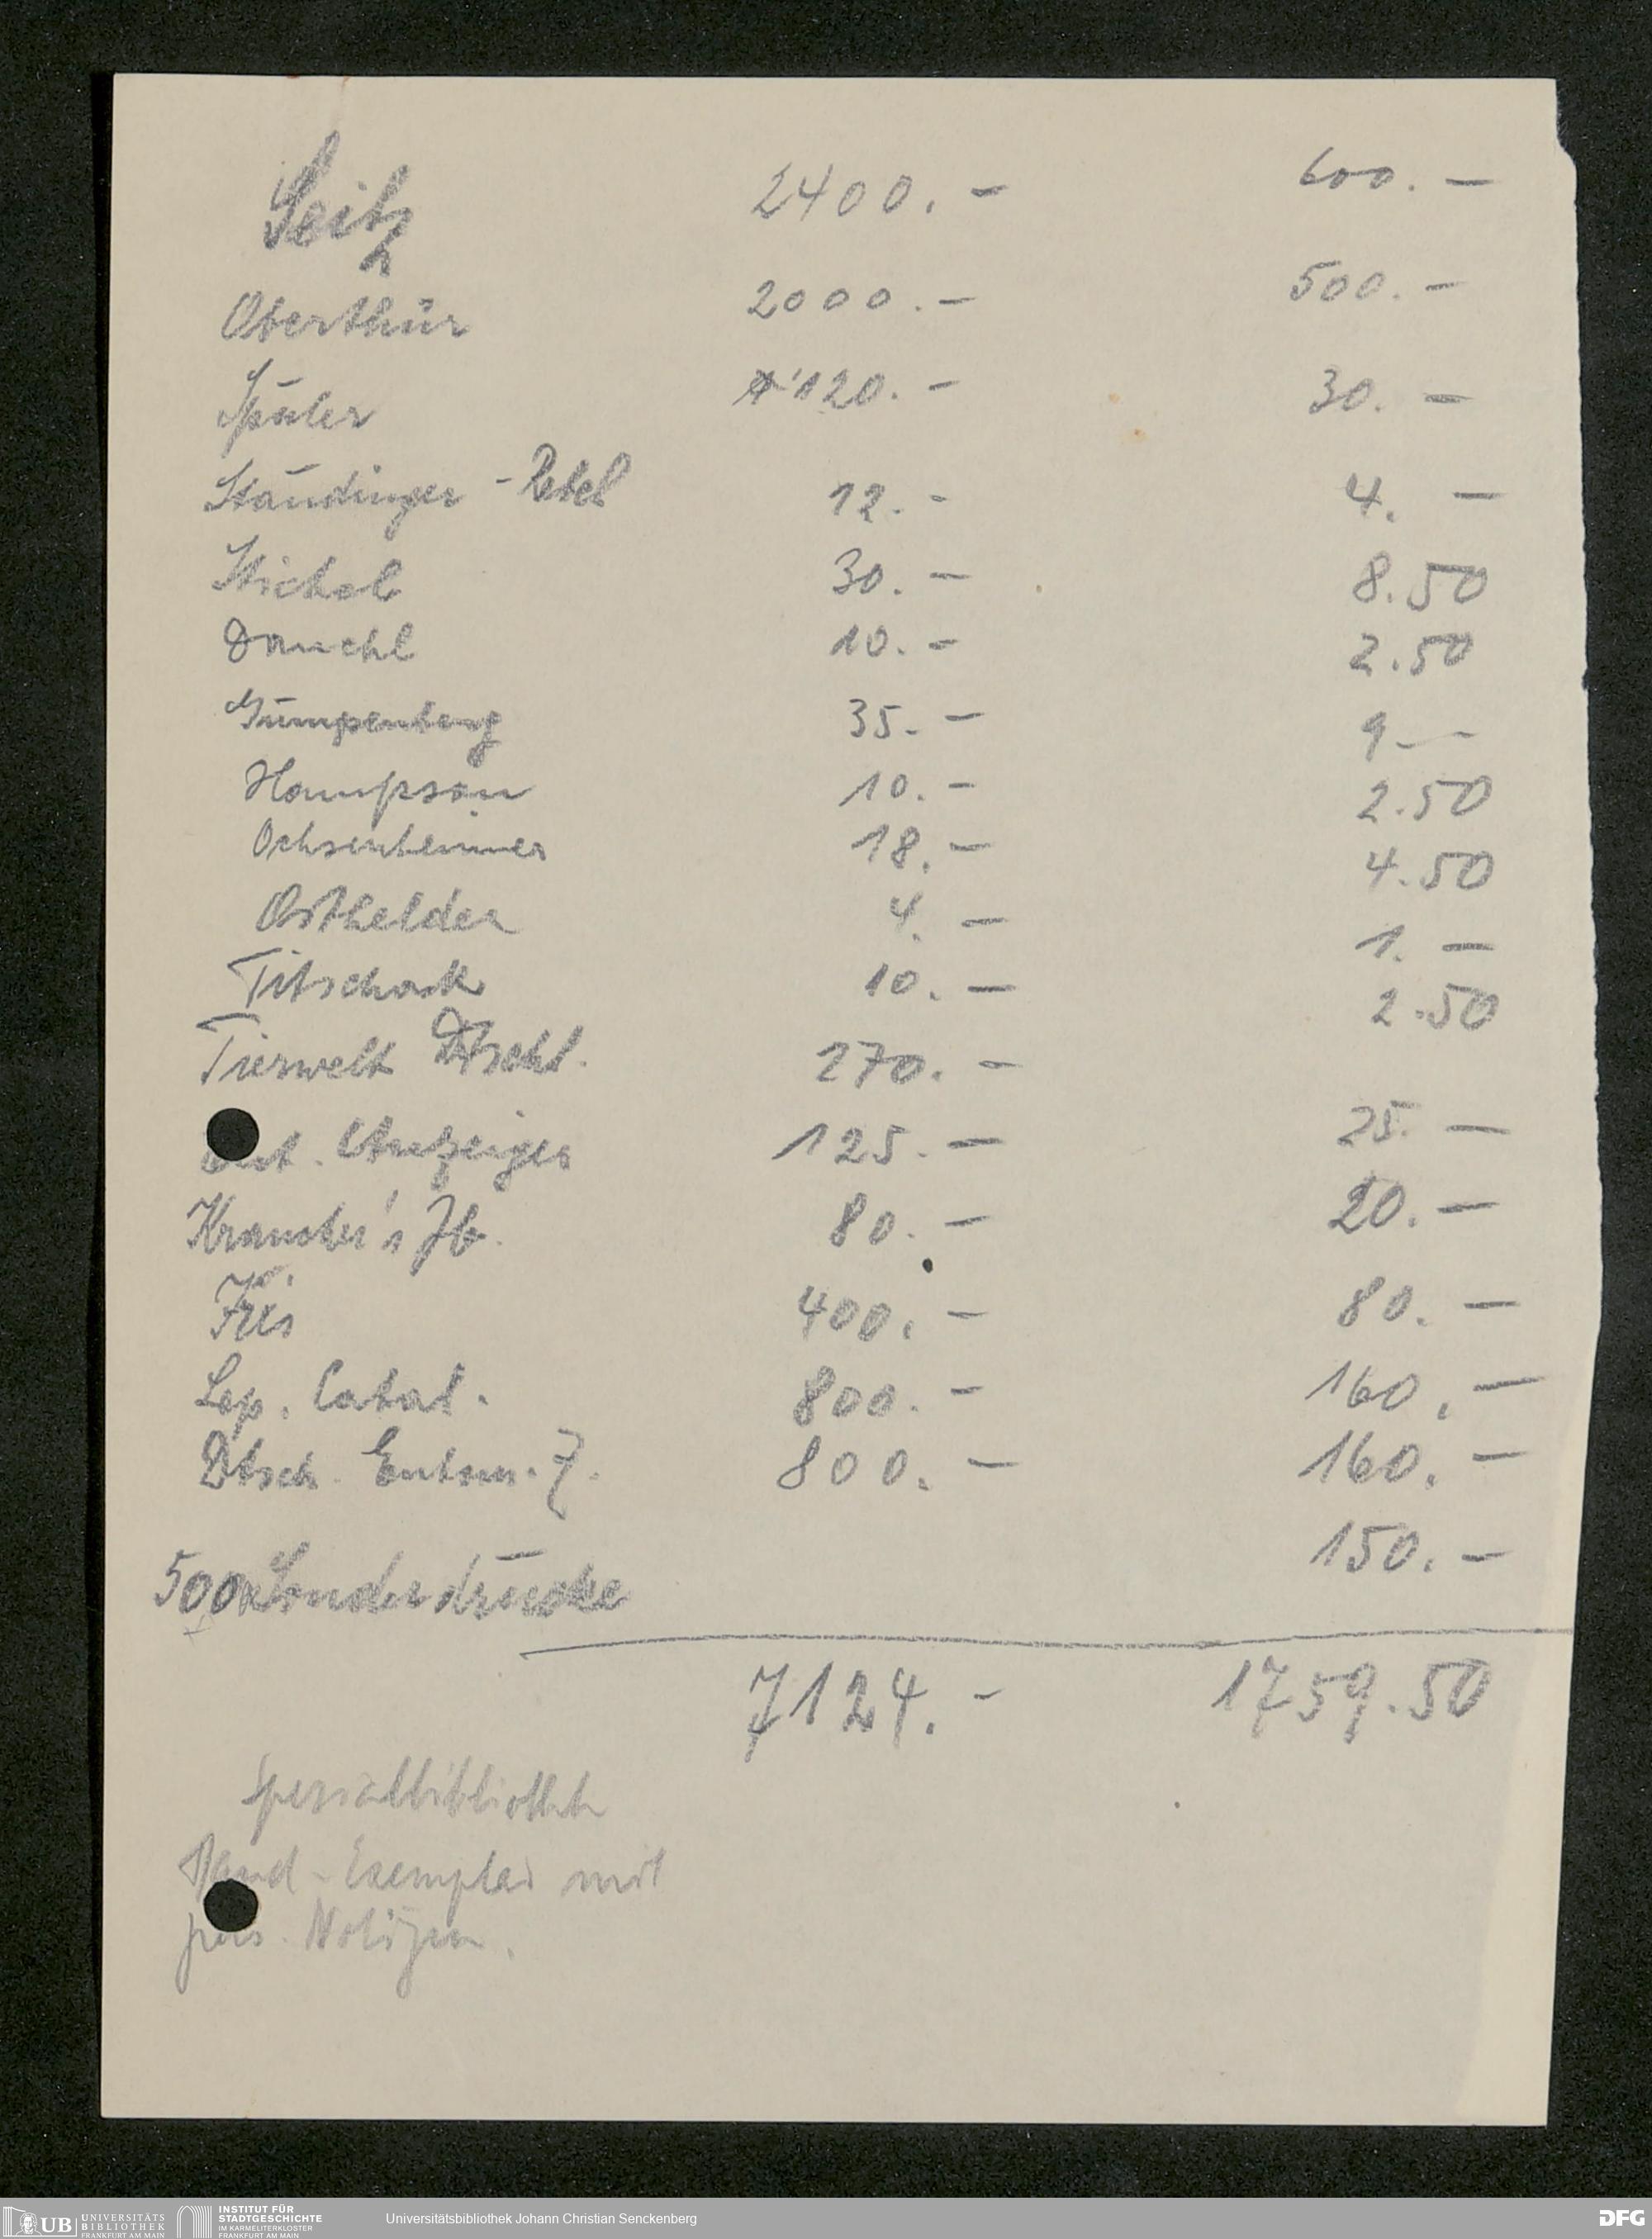 Seitz 2400.- 600.-
Oberthür 2000.- 500.-
Spuler 120.- 30.-
Staudinger - Rebel 12.- 4.-
Stichel 30.- 8.50
Dannehl 10.- 2.50
Gumpenberg 35.- 9.-
Hampson 10.- 2.50
Ochsenheimer 18.- 4.50
Osthelder 4.- 1.-
Titschack 10.- 2.50
Tierwelt Dtschl. 270.-
Ent. Anzeiger 125.- 25.-
Krancher's Jb. 80.- 20.-
Iris 400.- 80.-
Lep. Catal. 800.- 160.-
Dtsch. Entom. Z. 800.- 160.-
500 Sonderdrucke 150.-
7124.- 1759.50
Spezialbibliothek
Hand-Exemplar mit
pers. Notizen.
UB UNIVERSITÄTS BIBLIOTHEK FRANKFURT AM MAIN
INSTITUT FÜR STADTGESCHICHTE IM KARMELITERKLOSTER FRANKFURT AM MAIN
Universitätsbibliothek Johann Christian Senckenberg
DFG